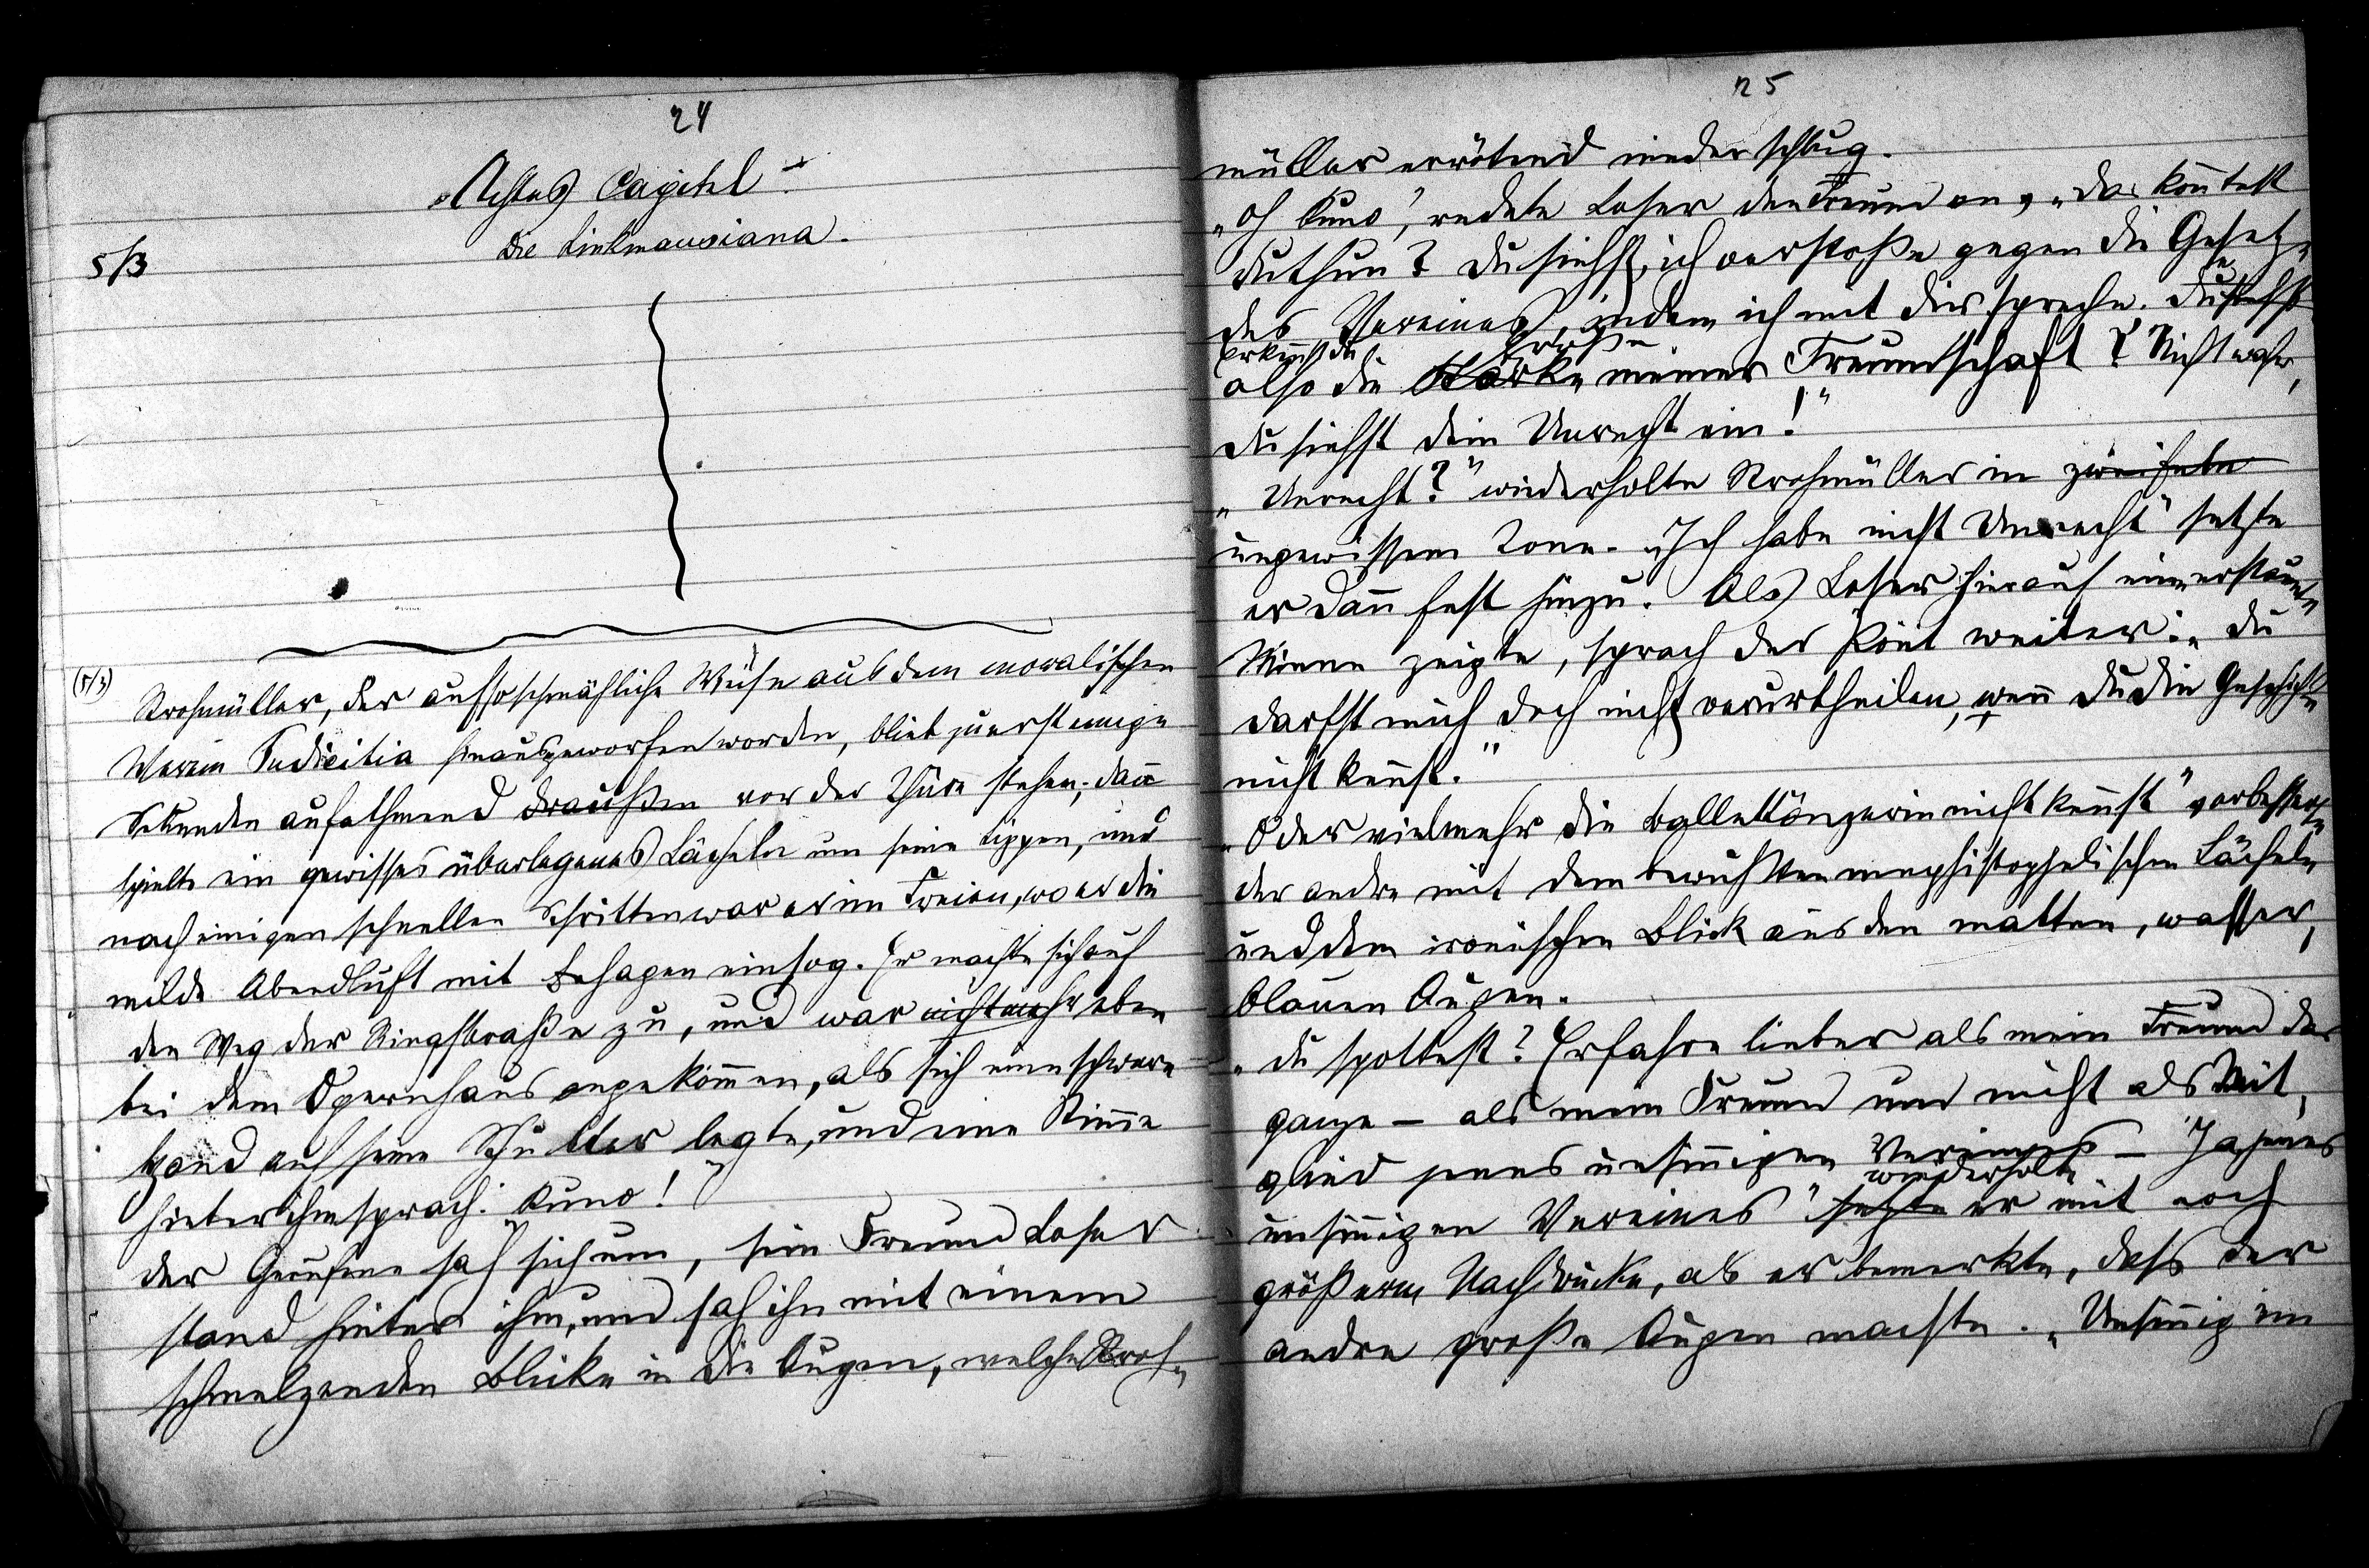 24
„Achtes Capitel“
Die Linkmausiana.
5/3
(5/3)
Strohmüller, der auf so schmähliche Weise aus dem moralischen
Verein Pudicitia hinausgeworfen worden, blieb zuerst einige
Sekunden aufathmend draußen vor der Thüre stehen; dann
spielte ein gewisses überlegenes Lächeln um seine Lippen, und
nach einigen schnellen Schritten war er im Freien, wo er die
milde Abendluft mit Behagen einsog. Er machte sich auf
den Weg der Ringstraße zu, und war nicht mehr eben
bei dem Opernhaus angekommen, als sich eine schwere
Hand auf seine Schulter legte, und eine Stimme
hinter ihm sprach: Kuno!“
Der Gerufene sah sich um, sein Freund Loser
stand hinter ihm, und sah ihn mit einem
schmelzenden Blicke in die Augen, welche Stroh-
25
müller errötend niederschlug.
„Oh Kuno“, redete Loser den Freund an, „das konntest
du thun? Du siehst, ich verstoße gegen die Gesetze
des Vereines, indem ich mit dir spreche. Du siehst
erkennst du Größe
also die Stärke meiner Freundschaft? Nicht wahr,
du siehst dein Unrecht ein!“
„Unrecht?“ wiederholte Strohmüller in zweifeln
ungewissem Tone. „Ich habe nicht Unrecht“ setzte
er dann fest hinzu. Als Loser hierauf eine erstaunte
Miene zeigte, sprach der Poet weiter: „Du
darfst mich doch nicht verurtheilen, wenn du die Geschichte
nicht kennst.“
„Oder vielmehr die Ballettänzerin nicht kennst“ verbesserte
der andre mit dem bewußten mephistophelischen Lächeln
und dem ironischen Blick aus den matten, wasser-
blauen Augen.
„Du spottest? Erfahre lieber als mein Freund das
ganze – als mein Freund und nicht als Mit-
glied jenes unsinnigen Vereines – Ja jenes
wiederholte
unsinnigen Vereines“ setzte er mit noch
größerm Nachdrucke, als er bemerkte, dass der
andre große Augen machte. „Unsinnig im